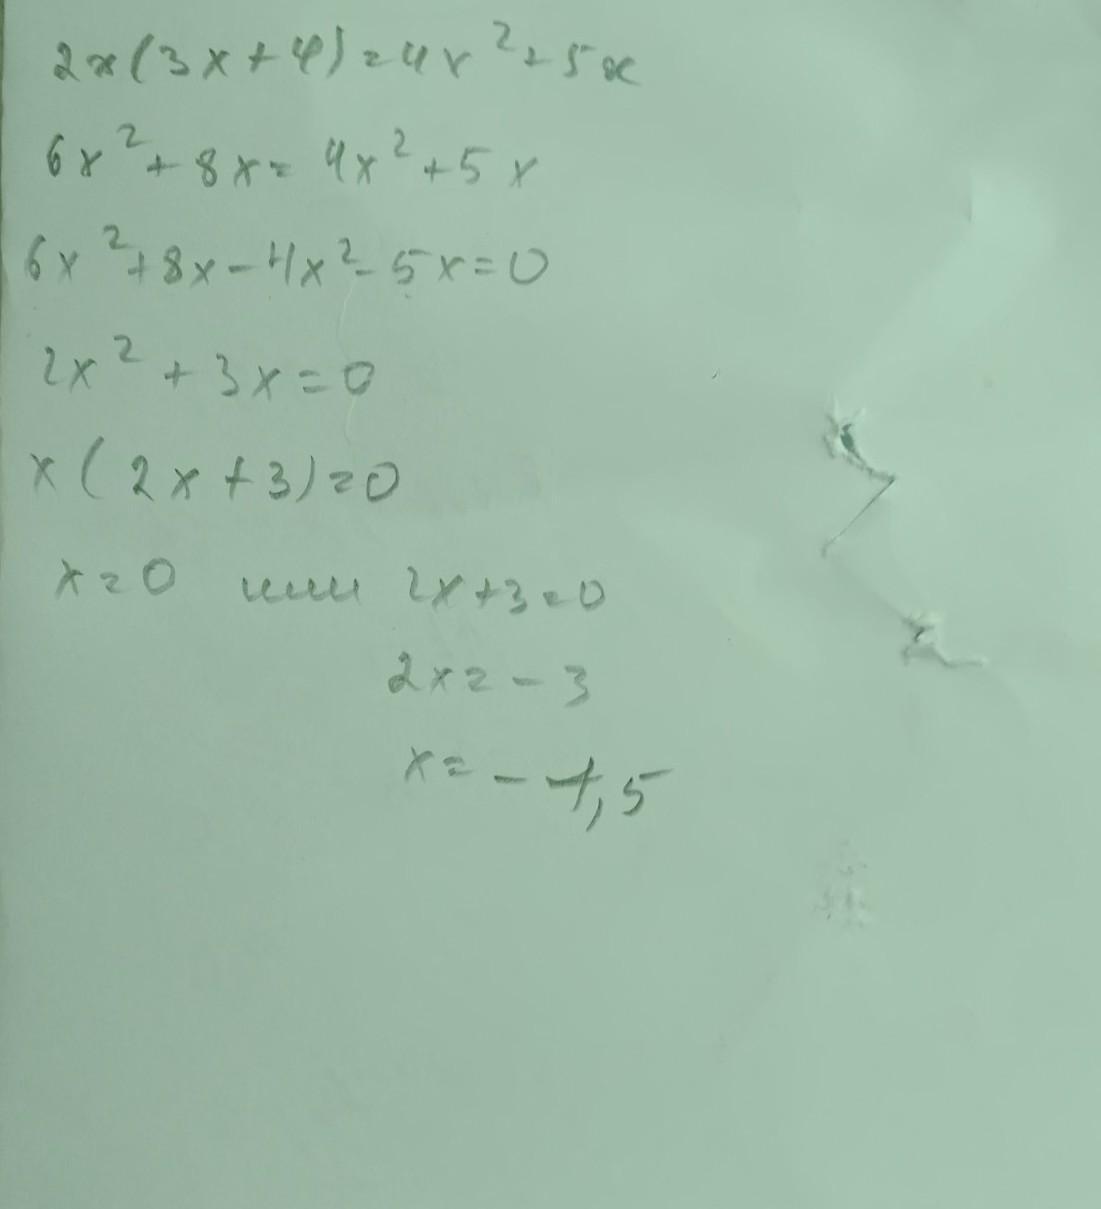 2x(3x+4)=4x²+5x
6x²+8x=4x²+5x
6x²+8x-4x²-5x=0
2x²+3x=0
x(2x+3)=0
x=0 или 2x+3=0
2x=-3
x=-1,5